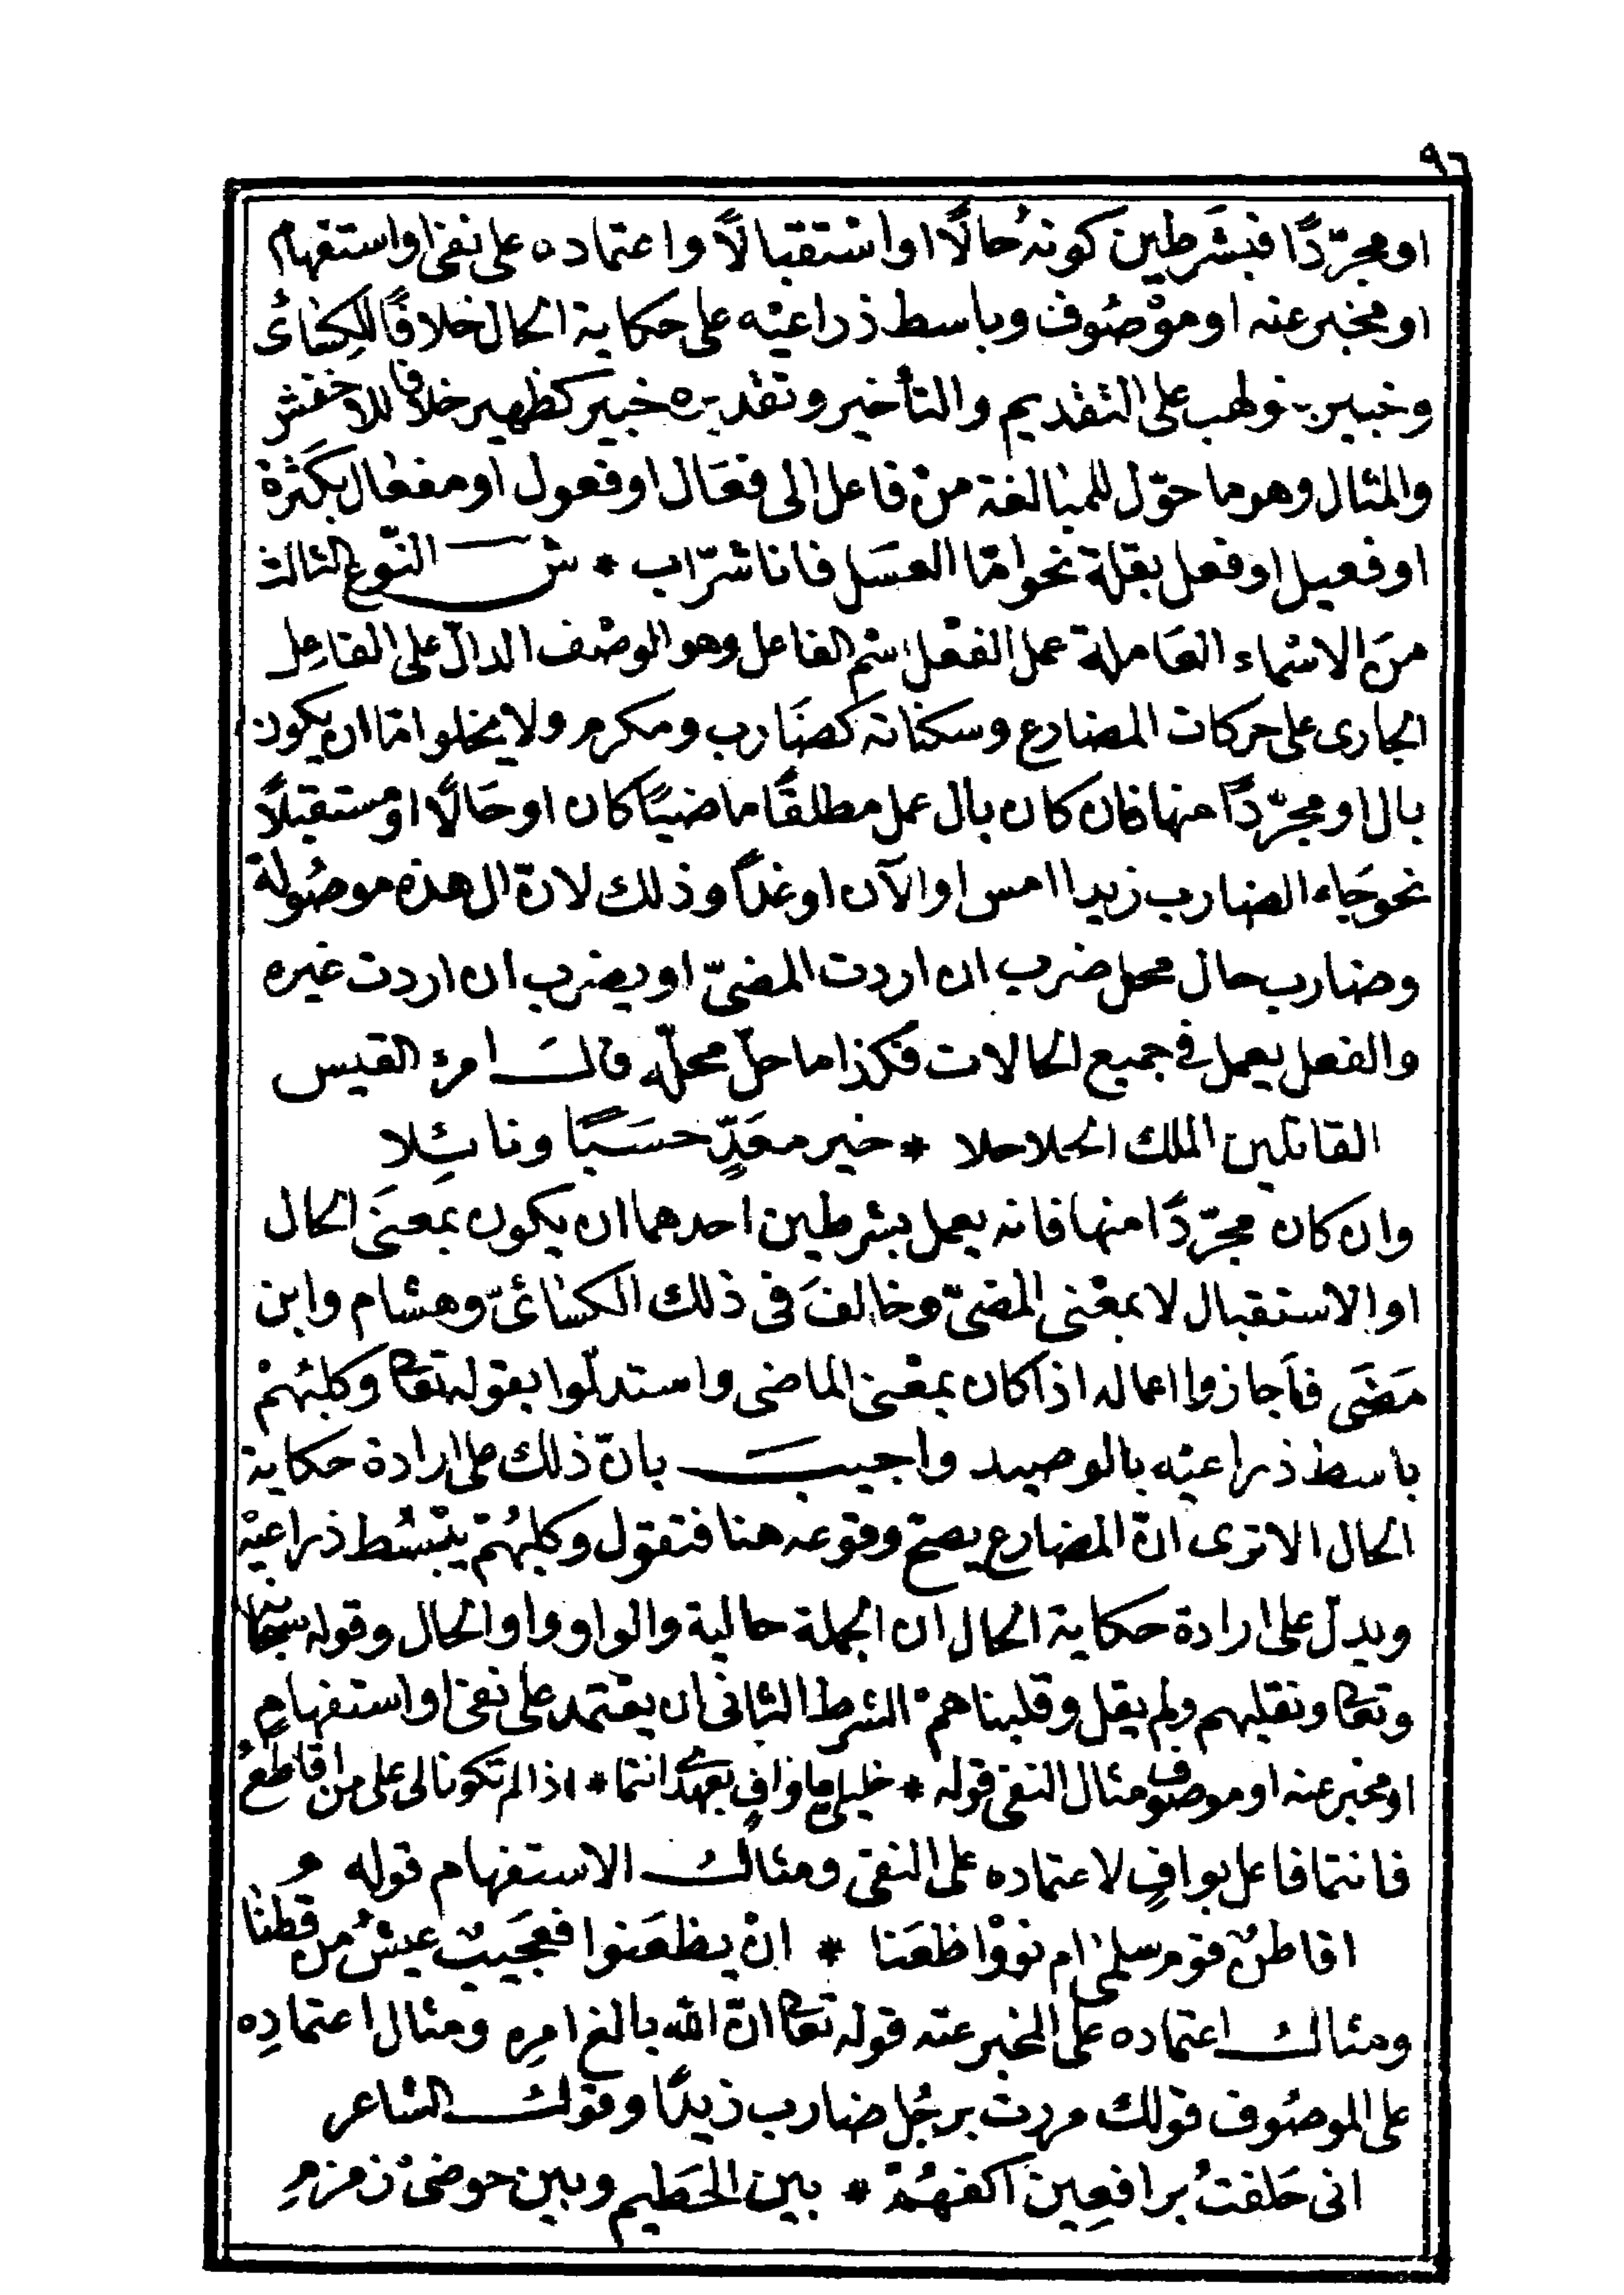 ٩٦
او مجرّدًا فبشَرطين كونهُ حالًا او اسْتقبالًا واعتماده على نفى او استفهام
او مخبر عنه او موْصُوف وباسط ذراعيْه على حكاية الحال خلافًا للكِسٰائى
وخبير بنو لهب على التقديم والتأخير وتقديره خبير كظهير خلافا للاخفش
والمثال وهو ما حوّل للمبٰالغة منْ فاعل الى فعَال او فعول او مفعٰال بكثرة
او فعيل او فعل بقلة نحو امّا العسَل فانا شرّاب * ش النّوع الثالث
منَ الاسْماء العَاملة عمل الفعْل اسْم الفاعل وهو الوصْف الدالّ على الفاعِل
الجارى على حركات المضارع وسكناته كضَارب ومكرم ولا يخلوا امّا ان يكون
بال او مجرّدًا منها فان كان بال عمل مطلقًا ماضيًا كان او حَالًا او مستقبلًا
نحو جَاء الضارب زيدا امس او الآن او غدًا وذلك لانّ ال هذه موصُولة
وضارب حال محل ضرب ان اردت المضىّ او يضرب ان اردت غيره
والفعل يعمل فى جميع الحالات فكذا ما حلّ محلّه قالَ امرئ القيس
القاتلين الملك الحلاحلا * خير معَدٍّ حسَبًا ونائِلا
وان كان مجرّدًا منها فانه يعمل بشرطين احدهما ان يكون بمعنَى الحال
او الاستقبال لا بمعْنى المضىّ وخالفَ فى ذلك الكسٰائىّ وهشام وابن
مَضَى فأجازوا اعماله اذا كان بمعْنى الماضى واستدلّوا بقوله تعا وكلبُهمْ
باسط ذراعيْه بالوصيد واجيبَ بانّ ذلك على ارادة حكاية
الحال الا ترى انّ المضارع يصحّ وقوعه هنا فتقول وكلبُهمْ يبْسُط ذراعيْه
ويدلّ على ارادة حكاية الحال ان الجملة حالية والواو واو الحال وقوله سبحانه
وتعا ونقلبهم ولم يقل وقلبناهمْ الشرط الثانى ان يعْتمد على نفى او استفهامٍ
او مخبر عنه او موصوف مثال النفى قوله * خليلىّ ما وافٍ بعهدى انتما * اذا لم تكونا لى على من اقاطعُ
فانتما فاعل بوافٍ لاعتماده على النفى ومثالُ الاستفهام قوله
اقاطنٌ قوم سلمى ام نووْا ظعَنا * انْ يظعَنوا فعجَيبٌ عيشُ من قَطنٰا
ومثالُ اعتماده على المخبر عنه قوله تعا انّ الله بالغ امرِه ومثال اعتمادِه
على الموصُوف قولك مررت برجُل ضارب زيدًا وقولُ الشاعر
انى حَلفتُ برافعِين اكفهُمْ * بين الحَطيم وبين حوضىْ زمزمِ